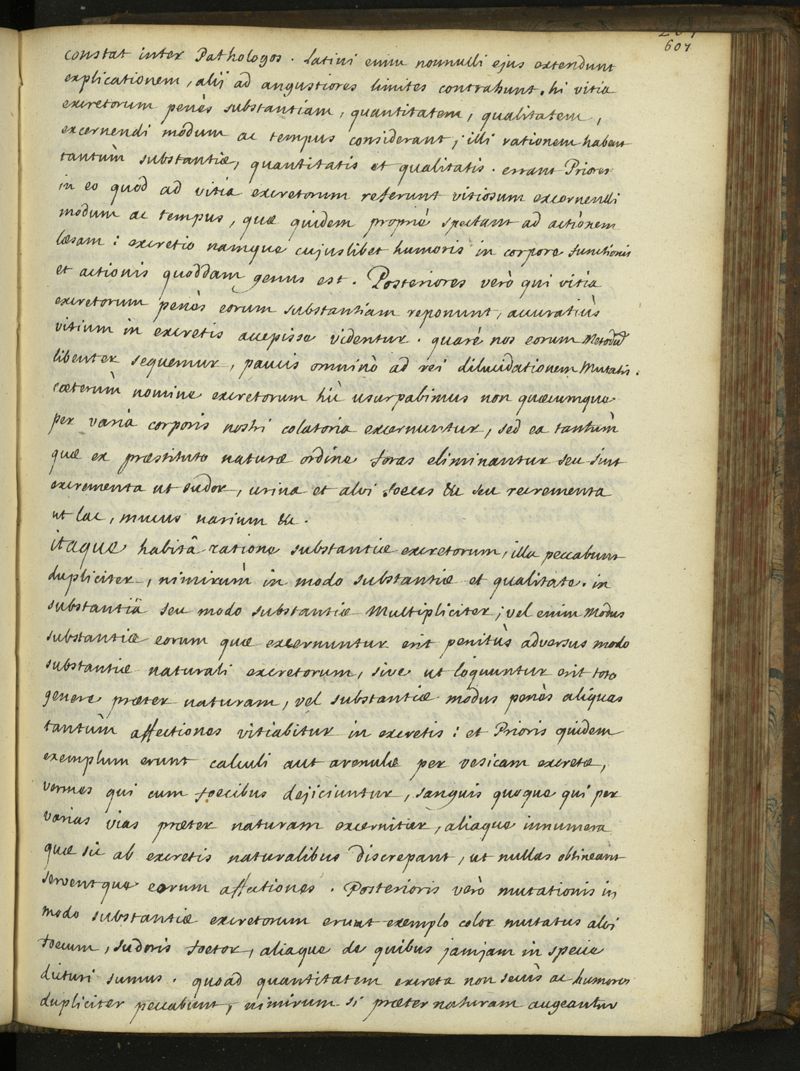 607
constat inter Pathologos. Latini enim nonnulli ejus extendunt
explicationem, alij ad angustiores limites contrahunt. hi vitia
excretorum penès substantiam, quantitatem, qualitatem,
excernendi modum ac tempus considerant; illi rationem habent
tantùm substantiæ, quantitatis et qualitatis. errant Priores
in eo quod ad vitia excretorum referunt vitiosum excernendi
modum ac tempus, quæ quidem propriè spectant ad actionem
læsam: excretio namque cujuslibet humoris in corpore functionis
et actionis quoddam genus est. Posteriores verò qui vitia
excretorum penès eorum substantiam reponunt, accuratiùs
vitium in excretis accepisse videntur. quarè nos eorum Methodum
libenter sequemur, paucis omninò ad rei dilucidationem Mutatis.
cæterùm nomine excretorum hìc usurpabimus non quæcumque
per varia corporis nostri colatoria excernuntur, sed ea tantùm
quæ ex præstituto naturæ ordine foras eliminantur seu sint
excrementa ut sudor, urina et alvi foeces &c seu recrementa
ut lac, mucus narium &c.
itaque habitâ ratione substantiæ excretorum, illa peccabunt
dupliciter, nimirùm in modo substantiæ et qualitate. in
substantiâ seu modo substantiæ Multipliciter; vel enim Modus
substantiæ eorum quæ excernuntur erit penitùs adversus modo
substantiæ naturali excretorum, sive ut loquuntur erit toto
genere præter naturam, vel substantiæ modus penès aliquas
tantùm affectiones vitiabitur in excretis: et Prioris quidem
exemplum erunt calculi aut arenulæ per vesicam excretæ,
vermes qui cum foecibus dejiciuntur, sanguis quoque qui per
varias vias præter naturam excernitur, aliaque innumera
quæ sic ab excretis naturalibus discrepant, ut nullas obtineant
serventque eorum affectiones. Posterioris verò mutationis in
modo substantiæ excretorum erunt exemplo color mutatus alvi
foecum, sudoris foetor, aliaque de quibus jamjam in specie
dicturi sumus. quoad quantitatem excreta non secùs ac humores
dupliciter peccabunt, nimirum si præter naturam augeantur